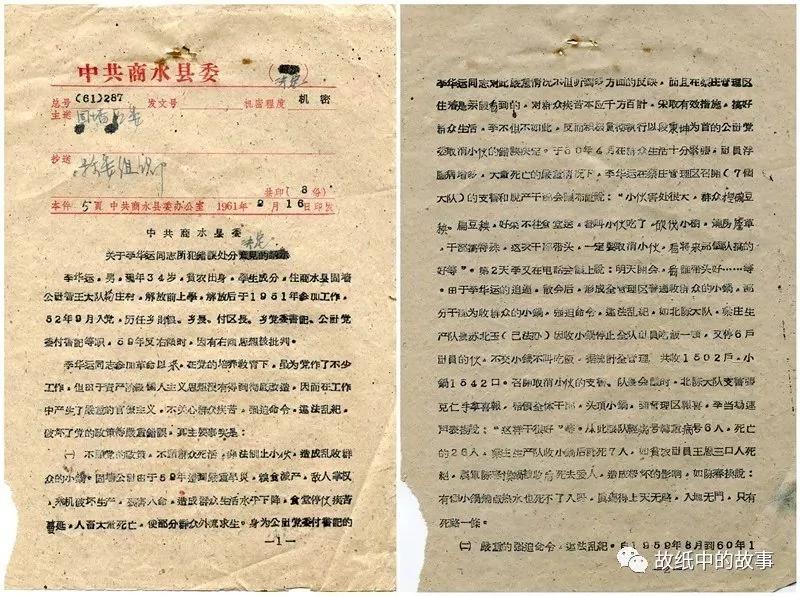 中共商水县委
总号(61)287 发文号 机密程度 机密
主送
抄送
共印(8份)
本件5页 中共商水县委办公室 1961年9月16日印发
中共商水县委
关于李华运同志所犯错误处分
李华运,男,现年34岁,贫农出身,学生成分,住商水县固墙
公社曹王大队村庄村,解放前上学,解放后于1951年参加工作,
52年9月入党,历任乡财粮、乡长、付区长、乡党委书记、公社党
委付书记等职,59年反右倾时,因有右倾思想被批判。
李华运同志参加革命以来,在党的培养教育下,虽为党作了不少
工作,但由于资产阶级个人主义思想没有得到彻底改造,因而在工作
中产生了严重的官僚主义,不关心群众疾苦,强迫命令,违法乱纪,
破坏了党的政策等严重错误,其主要事实是:
(一)不顾党的政策,不顾群众死活,制止小伙,造成乱收群
众的小锅。固墙公社由于59年遭到严重旱灾,粮食减产,敌人掌权
乘机破坏生产,造成群众生活水平下降,食堂停伙疾苦
蔓延,人畜大量死亡,使部分群众外流求生。身为公社党委付书记的
—1—
李华运同志对此严重情况不但听到多方面的反映,而且在蔡庄管理区
住着是亲眼看到的,对群众疾苦本应千方百计,采取有效措施,搞好
群众生活,李不但不如此,反而积极贯彻执行以段坤为首的公社党
委取消小伙的错误决定。于60年4月在群众生活十分紧张,社员浮
肿病增多,大量死亡的严重情况下,李华运在蔡庄管理区(7个
大队)的支书和脱产干部会议布置说:“小伙害处很大,群众摸豌豆
秧、扁豆秧,好菜不往食堂送,都叫小伙吃了,砍伐小树,
,干部搞特殊,这次干部带头,一定要取消小伙,看将来那个队搞的
好等”。第2天李又在电话会议上说:明天开会,看谁带头好……等
。由于李华运的追逼,散会后,形成全管理区普遍收群众的小锅,
部分干部为收群众的小锅,强迫命令,违法乱纪。如北陈大队,蔡庄生
产队苏北玉(已法办)因收小锅停止全队社员吃饭一顿,又停6户
社员的伙,不交小锅不叫吃饭,据统计全管理区共收1502户,小
锅1542口,召开取消小伙的支书、队长会议时,北陈大队支书张
克仁手拿喜报,带领全体干部,头顶小锅,到管理区报喜,李当场连
声表扬说:“这样干很好”等。从此该队浮肿病号6人,死亡
的26人,蔡东生产队收小锅后死7人,如贫农社员王恩三口人死
绝,小锅被收后死去爱人,造成很坏的影响,如陈春换说:
有个小锅烧点热水也死不了人呀,真弄得上天无路,入地无门,只有
死路一条。
(二)严重的强迫命令,违法乱纪。自1959年8月到60年1
—2—
故纸中的故事